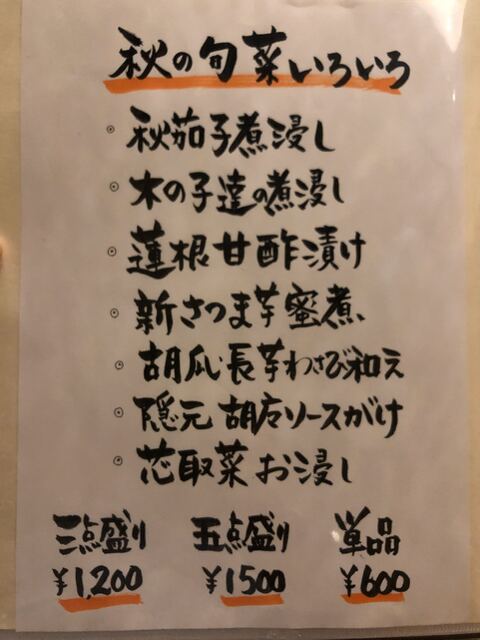 秋の旬菜いろいろ
秋茄子煮浸し
木の子達の煮浸し
蓮根甘酢漬け
新さつま芋蜜煮
胡瓜・長芋わさび和え
隠元胡麻ソースがけ
芯取菜お浸し
三点盛り 五点盛り 単品
¥1,200 ¥1500 ¥600